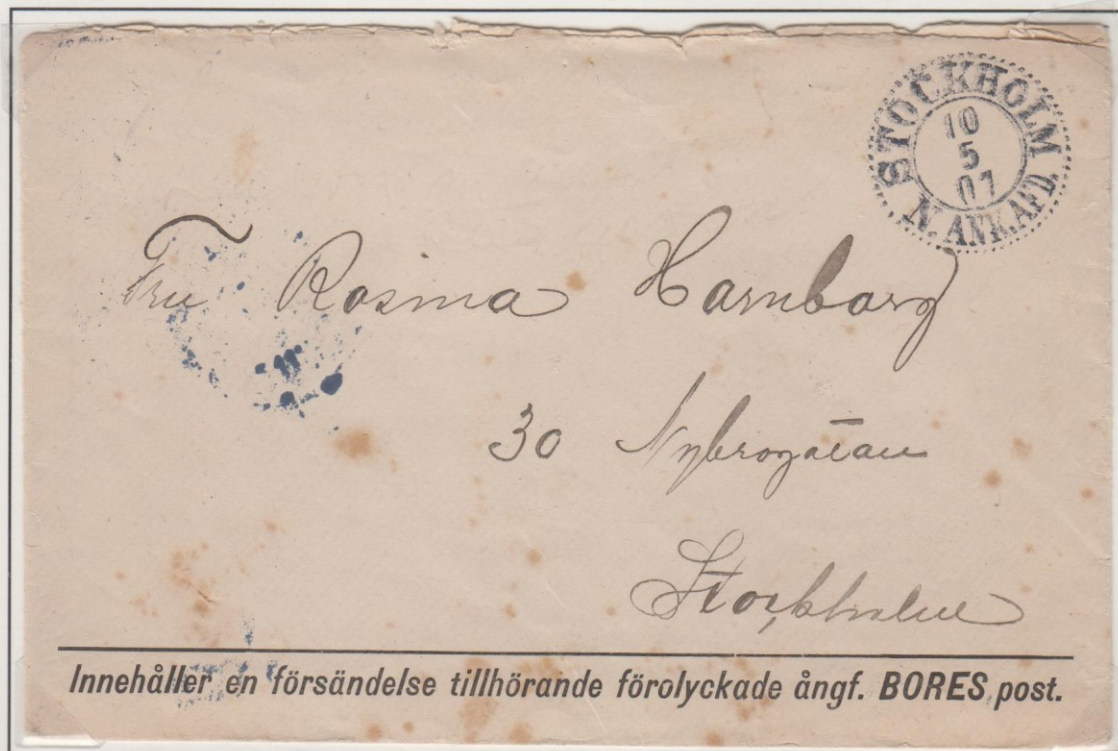 STOCKHOLM
10
5
07
N. ANK. AFD.
Fru Rosina Harnborg
30 Nybrogatan
Stockholm
Innehåller en försändelse tillhörande förolyckade ångf. BORES post.